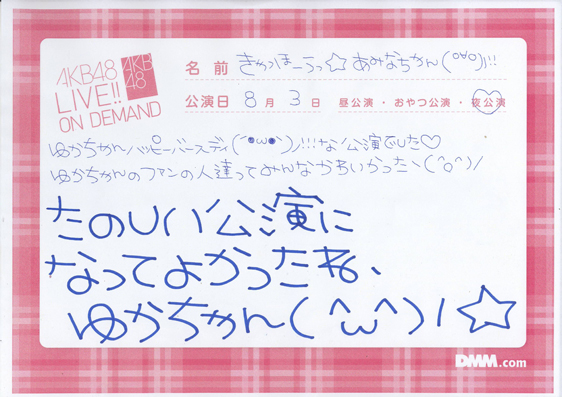 AKB48
LIVE!!
ON DEMAND
AKB
48
名前 きゃっほーうっ☆ あみなちゃん(°∀°)!!
公演日 8月3日 昼公演・おやつ公演・夜公演
ゆかちゃんハッピーバースディ(´●ω●`)ノ!!!な公演でした♡
ゆかちゃんのファンの人達ってみんなかわいかったヽ(^o^)/
たのしい公演に
なってよかったね、
ゆかちゃん(^ω^)ノ☆
DMM.com